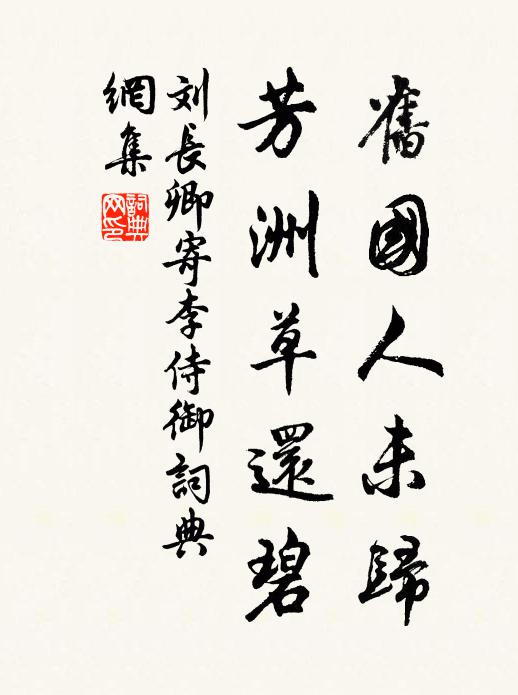 舊國人未歸
芳洲草還碧
刘長卿寄李侍御詞典
網集
詞典
网印